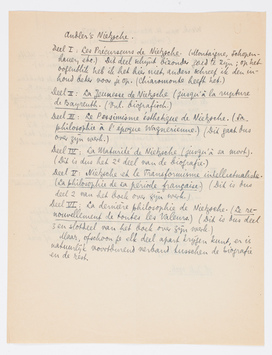 Andler's Nietzsche.
Deel I: Les Précurseurs de Nietzsche. (Montaigne, Schopen-
hauer, enz.) Dit deel schijnt bizonder goed te zijn; op het
oogenblik heb ik het hier niet, anders schreef ik den in-
houd beter voor je op. (Chiaromonte heeft het.)
Deel II: La Jeunesse de Nietzsche (jusqu'à la rupture
de Bayreuth. (Put. biografisch)
Deel III: Le Pessimisme esthétique de Nietzsche. (La
philosophie à l'époque Wagnérienne.) (Dit gaat dus
over zijn werk.)
Deel IV: La Maturité de Nietzsche (jusqu'à sa mort).
(Dit is dus het 2e deel van de biografie.)
Deel V: Nietzsche et le Transformisme intellectualiste.
(La philosophie de sa période française) (Dit is dus
deel 2 van het boek over zijn werk.)
Deel VI: La dernière philosophie de Nietzsche. (Le re-
nouvellement de toutes les Valeurs.) (Dit is dus deel
3 en slotdeel van het boek over zijn werk.)
Maar, ofschoon je elk deel apart krijgen kunt, er is
natuurlijk voortdurend verband tusschen de biografie
en de rest.